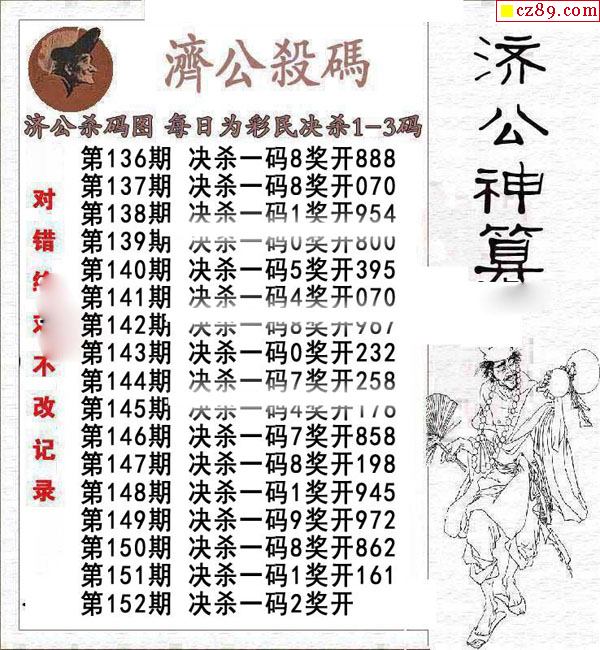 cz89.com
濟公殺碼
济公杀码图 每日为彩民决杀1-3码
第136期 决杀一码8奖开888
第137期 决杀一码8奖开070
第138期 决杀一码1奖开954
第139期 决杀一码0奖开800
第140期 决杀一码5奖开395
第141期 决杀一码4奖开070
第142期 决杀一码8奖开967
第143期 决杀一码0奖开232
第144期 决杀一码7奖开258
第145期 决杀一码4奖开176
第146期 决杀一码7奖开858
第147期 决杀一码8奖开198
第148期 决杀一码1奖开945
第149期 决杀一码9奖开972
第150期 决杀一码8奖开862
第151期 决杀一码1奖开161
第152期 决杀一码2奖开
对错 不改记录
济公神算